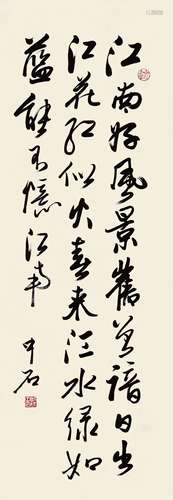 江南好风景旧曾谙日出
江花红似火春来江水绿如
蓝能不忆江南
中石